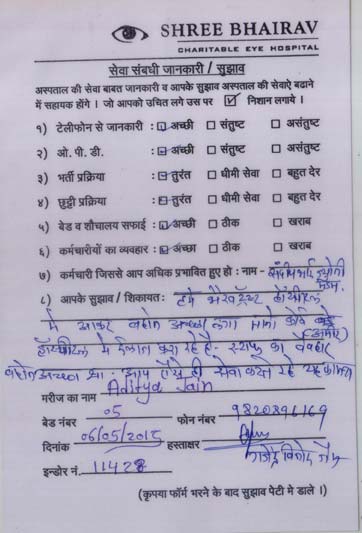 SHREE BHAIRAV
CHARITABLE EYE HOSPITAL
सेवा संबधी जानकारी / सुझाव
अस्पताल की सेवा बाबत जानकारी व आपके सुझाव अस्पताल की सेवाऐं बढाने
में सहायक होंगे । जो आपको उचित लगे उस पर ☑ निशान लगाये ।
१) टेलीफोन से जानकारी : ☑ अच्छी ☐ संतुष्ट ☐ असंतुष्ट
२) ओ. पी. डी. : ☑ अच्छी ☐ संतुष्ट ☐ असंतुष्ट
३) भर्ती प्रक्रिया : ☑ तुरंत ☐ धीमी सेवा ☐ बहुत देर
४) छुट्टी प्रक्रिया : ☑ तुरंत ☐ धीमी सेवा ☐ बहुत देर
५) बेड व शौचालय सफाई : ☑ अच्छी ☐ ठीक ☐ खराब
६) कर्मचारीयों का व्यवहार : ☑ अच्छा ☐ ठीक ☐ खराब
७) कर्मचारी जिससे आप अधिक प्रभावित हुए हो : नाम - संदीप भाई ज्योती
मॅडम
८) आपके सुझाव / शिकायत : हमे भैरव ट्रस्ट
में आकर बहोत अच्छा लगा मानो कोई
में ईलाज करा रहे है - स्टाफ का वेवहार
बहोत अच्छा था - आप ऐसे ही सेवा करते रहे यह कामना
मरीज का नाम Aditya Jain
बेड नंबर 05 फोन नंबर 9820896169
दिनांक 06/05/2015 हस्ताक्षर
इन्डोर नं. 11428
(कृपया फॉर्म भरने के बाद सुझाव पेटी मे डाले ।)